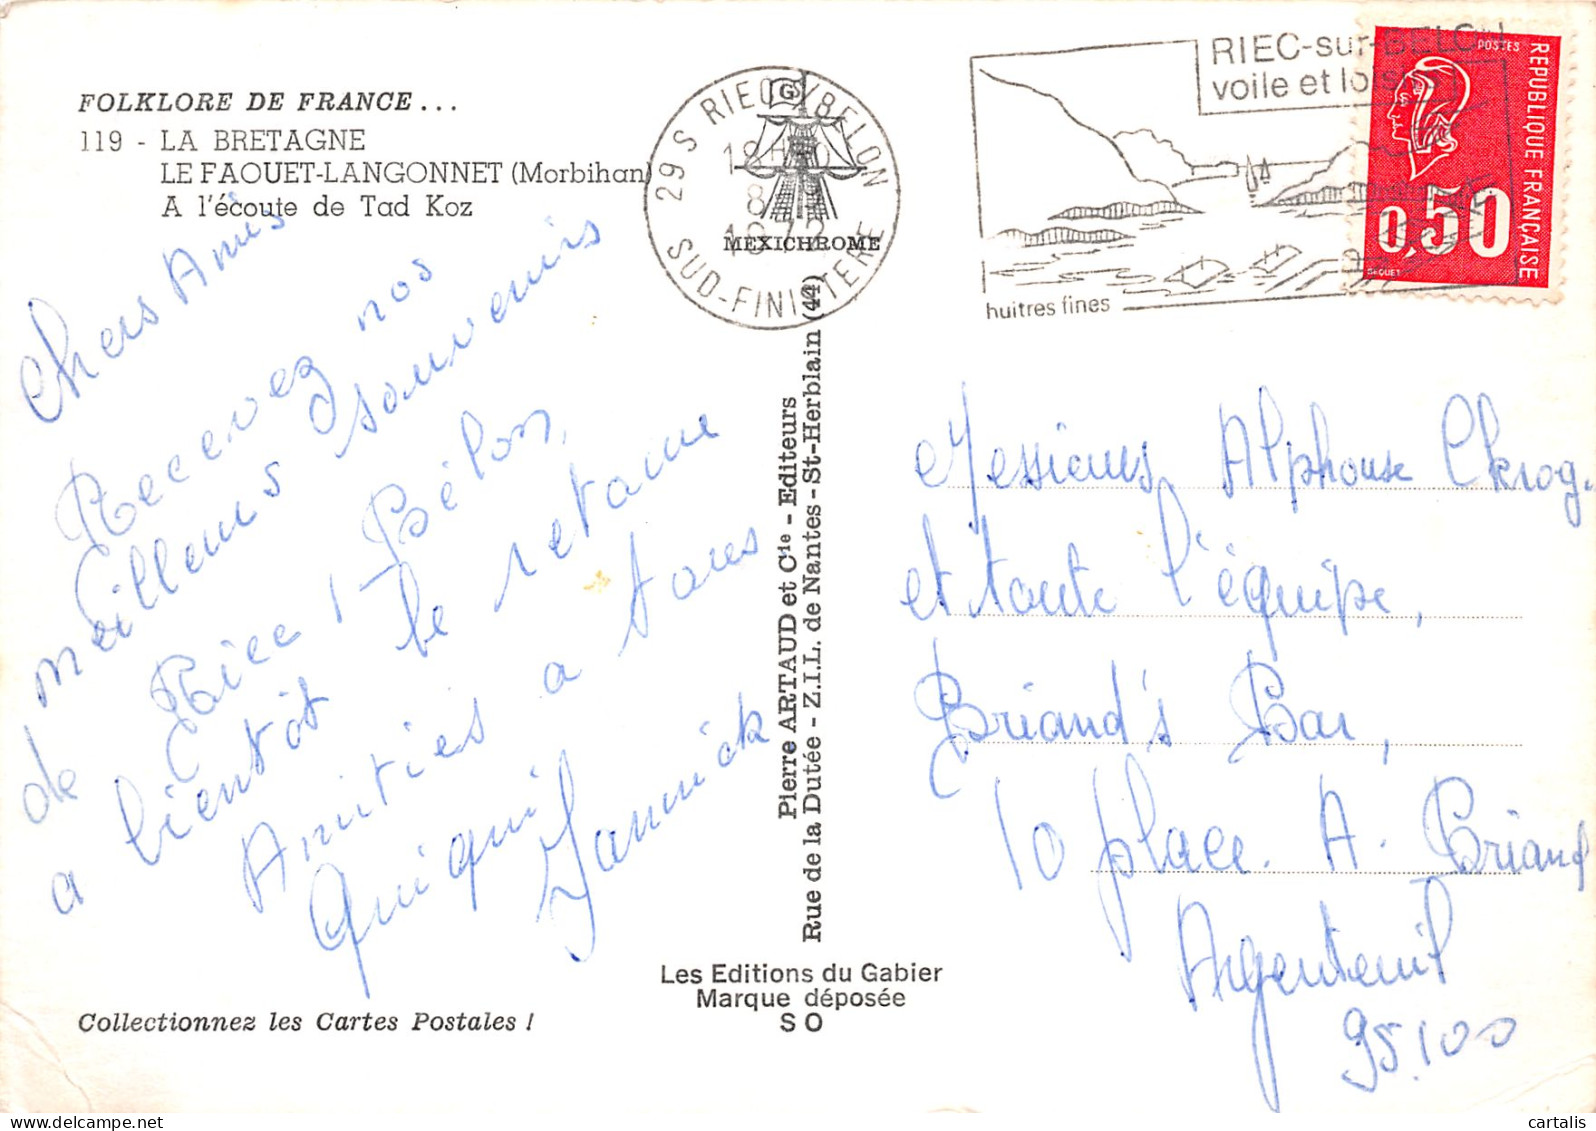 FOLKLORE DE FRANCE...
119 - LA BRETAGNE
LE FAOUET-LANGONNET (Morbihan)
A l'écoute de Tad Koz
Chers Amis
Recevez nos
meilleurs souvenirs
de Riec / Bélon,
a bientôt le retour
Amitiés a tous
Quiqui
Yannick
Collectionnez les Cartes Postales !
29 S RIEC S/BELON
18H
8
1972
SUD-FINISTERE
G
MEXICHROME
Pierre ARTAUD et Cie - Editeurs
Rue de la Dutée - Z.I.L. de Nantes - St-Herblain (44)
Les Editions du Gabier
Marque déposée
SO
RIEC-sur-BELON
voile et loisirs
huitres fines
POSTES
REPUBLIQUE FRANÇAISE
0,50
BEQUET
Messieurs Alphonse Ckrog.
et toute l'équipe,
Briand's Bar,
10 place A. Briand
Argenteuil
95.100
cartalis
CARTALIS.COM